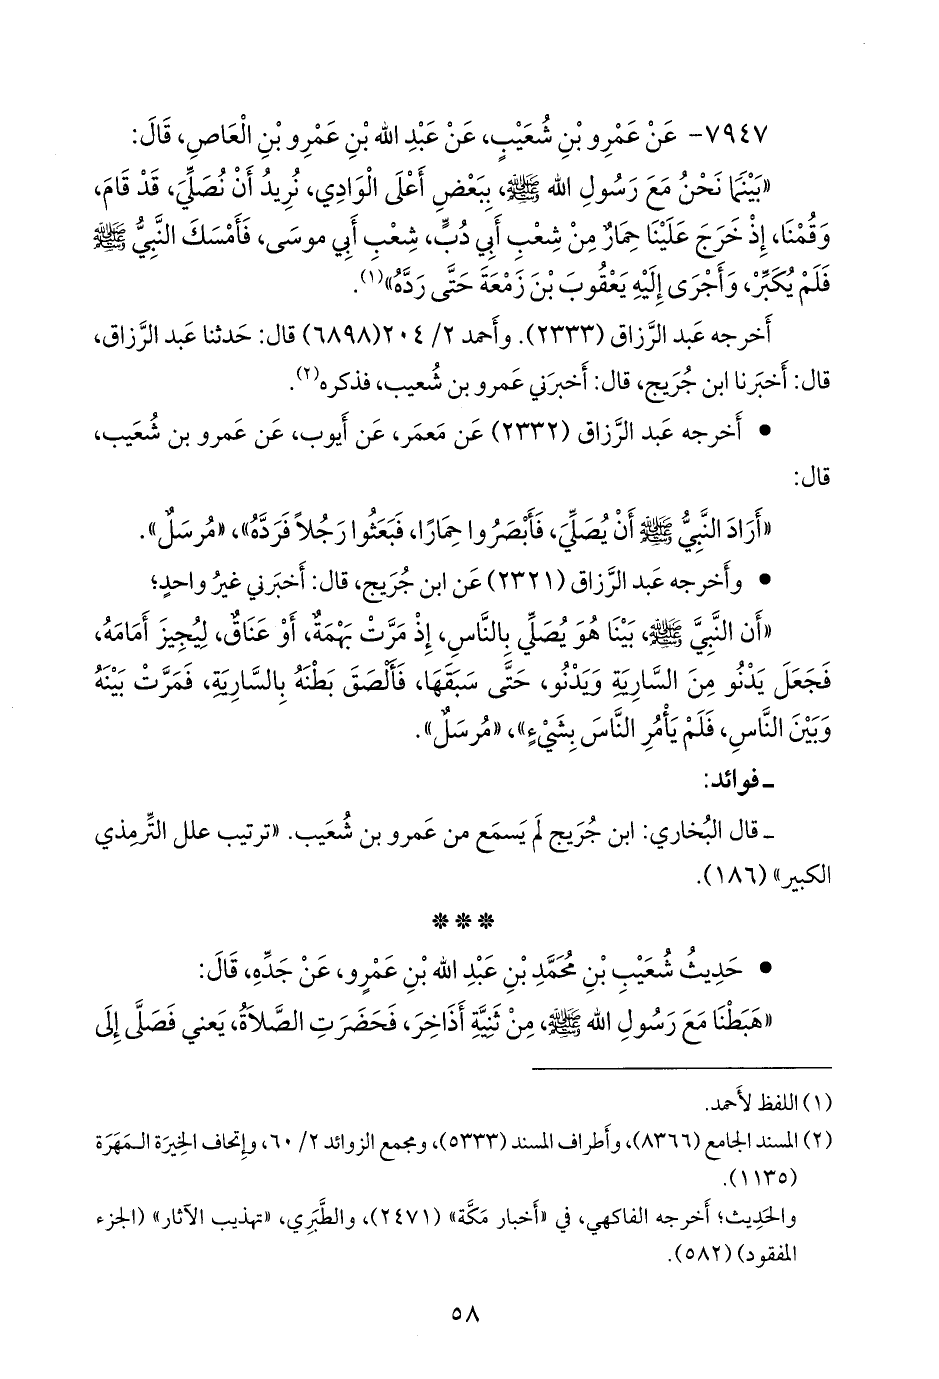 ٧٩٤٧- عَنْ عَمْرِو بْنِ شُعَيْبٍ، عَنْ عَبْدِ الله بْنِ عَمْرِو بْنِ الْعَاصِ، قَالَ:
«بَيْنَمَا نَحْنُ مَعَ رَسُولِ الله ﷺ، بِبَعْضِ أَعْلَى الْوَادِي، نُرِيدُ أَنْ نُصَلِّيَ، قَدْ قَامَ،
وَقُمْنَا، إِذْ خَرَجَ عَلَيْنَا حِمَارٌ مِنْ شِعْبِ أَبِي دُبٍّ، شِعْبِ أَبِي موسَى، فَأَمْسَكَ النَّبِيُّ ﷺ
فَلَمْ يُكَبِّرْ، وَأَجْرَى إِلَيْهِ يَعْقُوبَ بْنَ زَمْعَةَ حَتَّى رَدَّهُ»(١).
أَخرجه عَبد الرَّزاق (٢٣٣٣). وأَحمد ٢/ ٢٠٤(٦٨٩٨) قال: حَدثنا عَبد الرَّزاق،
قال: أَخبَرنا ابن جُرَيج، قال: أَخبرَني عَمرو بن شُعيب، فذكره(٢).
• أَخرجه عَبد الرَّزاق (٢٣٣٢) عَن مَعمَر، عَن أَيوب، عَن عَمرو بن شُعَيب،
قال:
«أَرَادَ النَّبِيُّ ﷺ أَنْ يُصَلِّيَ، فَأَبْصَرُوا حِمَارًا، فَبَعَثُوا رَجُلاً فَرَدَّهُ»، «مُرسَلٌ».
• وأَخرجه عَبد الرَّزاق (٢٣٢١) عَن ابن جُرَيج، قال: أَخبَرني غيرُ واحدٍ؛
«أَن النَّبِيَّ ﷺ، بَيْنَا هُوَ يُصَلِّي بِالنَّاسِ، إِذْ مَرَّتْ بَهْمَةٌ، أَوْ عَنَاقٌ، لِيُجِيزَ أَمَامَهُ،
فَجَعَلَ يَدْنُو مِنَ السَّارِيَةِ وَيَدْنُو، حَتَّى سَبَقَهَا، فَأَلْصَقَ بَطْنَهُ بِالسَّارِيَةِ، فَمَرَّتْ بَيْنَهُ
وَبَيْنَ النَّاسِ، فَلَمْ يَأْمُرِ النَّاسَ بِشَيْءٍ»، «مُرسَلٌ».
ـ فوائد:
ـ قال البُخاري: ابن جُرَيج لَم يَسمَع من عَمرو بن شُعَيب. «ترتيب علل التِّرمِذي
الكبير» (١٨٦).
***
• حَدِيثُ شُعَيْبِ بْنِ مُحَمَّدِ بْنِ عَبْدِ الله بْنِ عَمْرٍو، عَنْ جَدِّهِ، قَالَ:
«هَبَطْنَا مَعَ رَسُولِ الله ﷺ، مِنْ ثَنِيَّةِ أَذَاخِرَ، فَحَضَرَتِ الصَّلاَةُ، يَعني فَصَلَّى إِلَى
(١) اللفظ لأَحمد.
(٢) المسند الجامع (٨٣٦٦)، وأَطراف المسند (٥٣٣٣)، ومجمع الزوائد ٢/ ٦٠، وإِتحاف الخِيرَة الـمَهَرَة
(١١٣٥).
والحَدِيث؛ أَخرجه الفاكهي، في «أَخبار مَكَّة» (٢٤٧١)، والطَّبَرِي، «تهذيب الآثار» (الجزء
المفقود) (٥٨٢).
٥٨